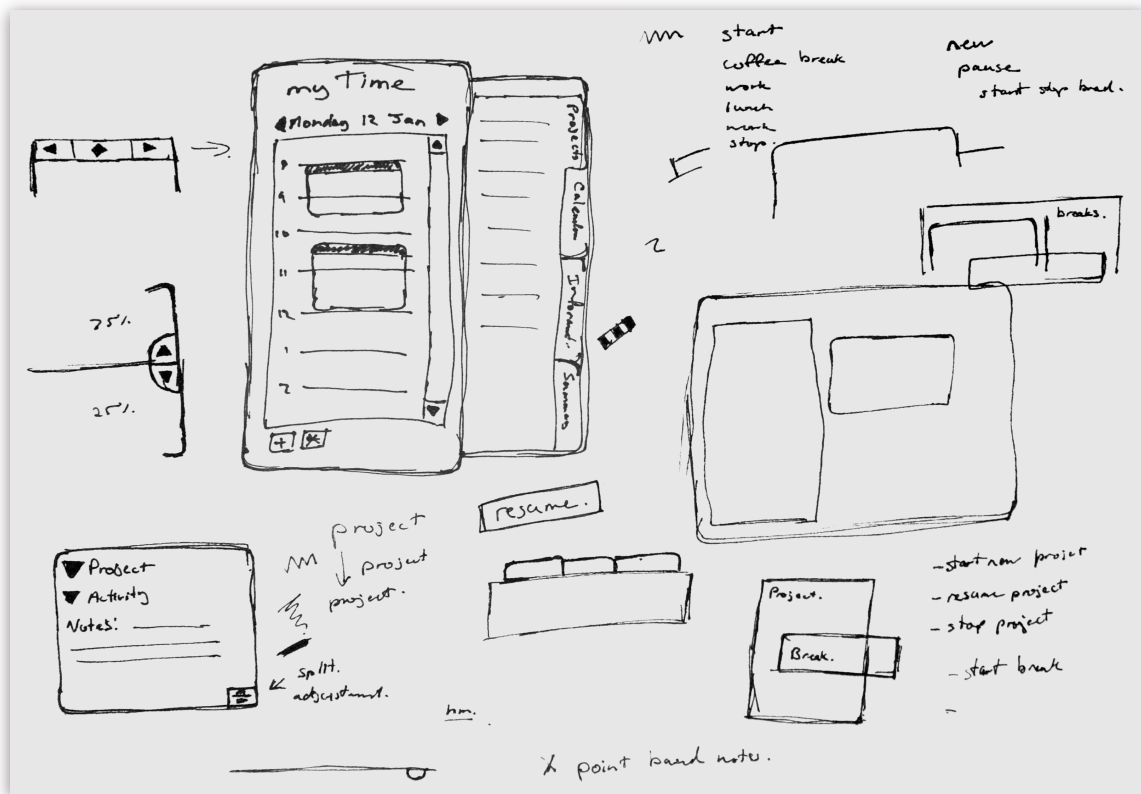 start
coffee break
work
lunch
work
stop.
new
pause
start stop
my Time
Monday 12 Jan
9
10
11
12
1
2
Projects
Calendar
Summary
breaks.
25%
resume.
project
project
project.
Project
Activity
Notes:
split.
adjustment.
hm.
Project.
Break.
- start new project
- resume project
- stop project
- start break
-
point based notes.